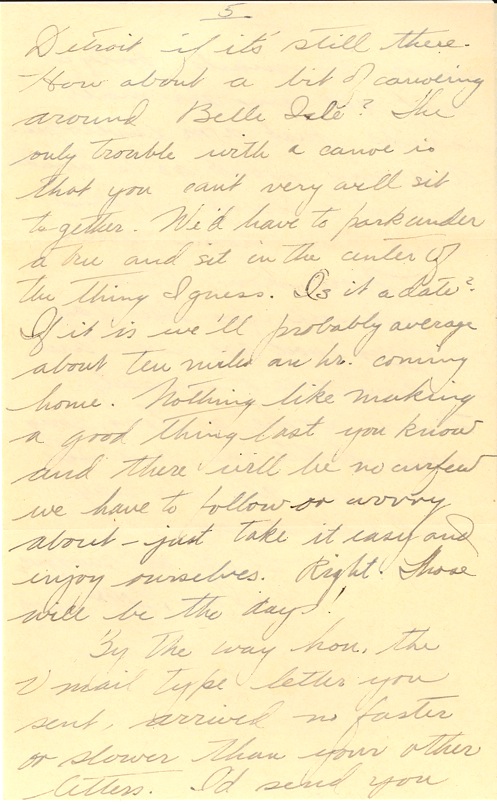 5
Detroit if it's still there.
How about a bit of canoeing
around Belle Isle? The
only trouble with a canoe is
that you can't very well sit
together. We'd have to park under
a tree and sit in the center of
the thing I guess. Is it a date?
If it is we'll probably average
about ten miles an hr. coming
home. Nothing like making
a good thing last you know
and there will be no curfew
we have to follow or worry
about - just take it easy and
enjoy ourselves. Right. Those
will be the days!
By the way hon, the
V mail type letter you
sent, arrived no faster
or slower than your other
letters. I'd send you